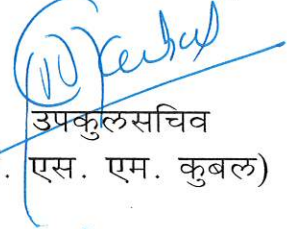 उपकुलसचिव
. एस. एम. कुबल)